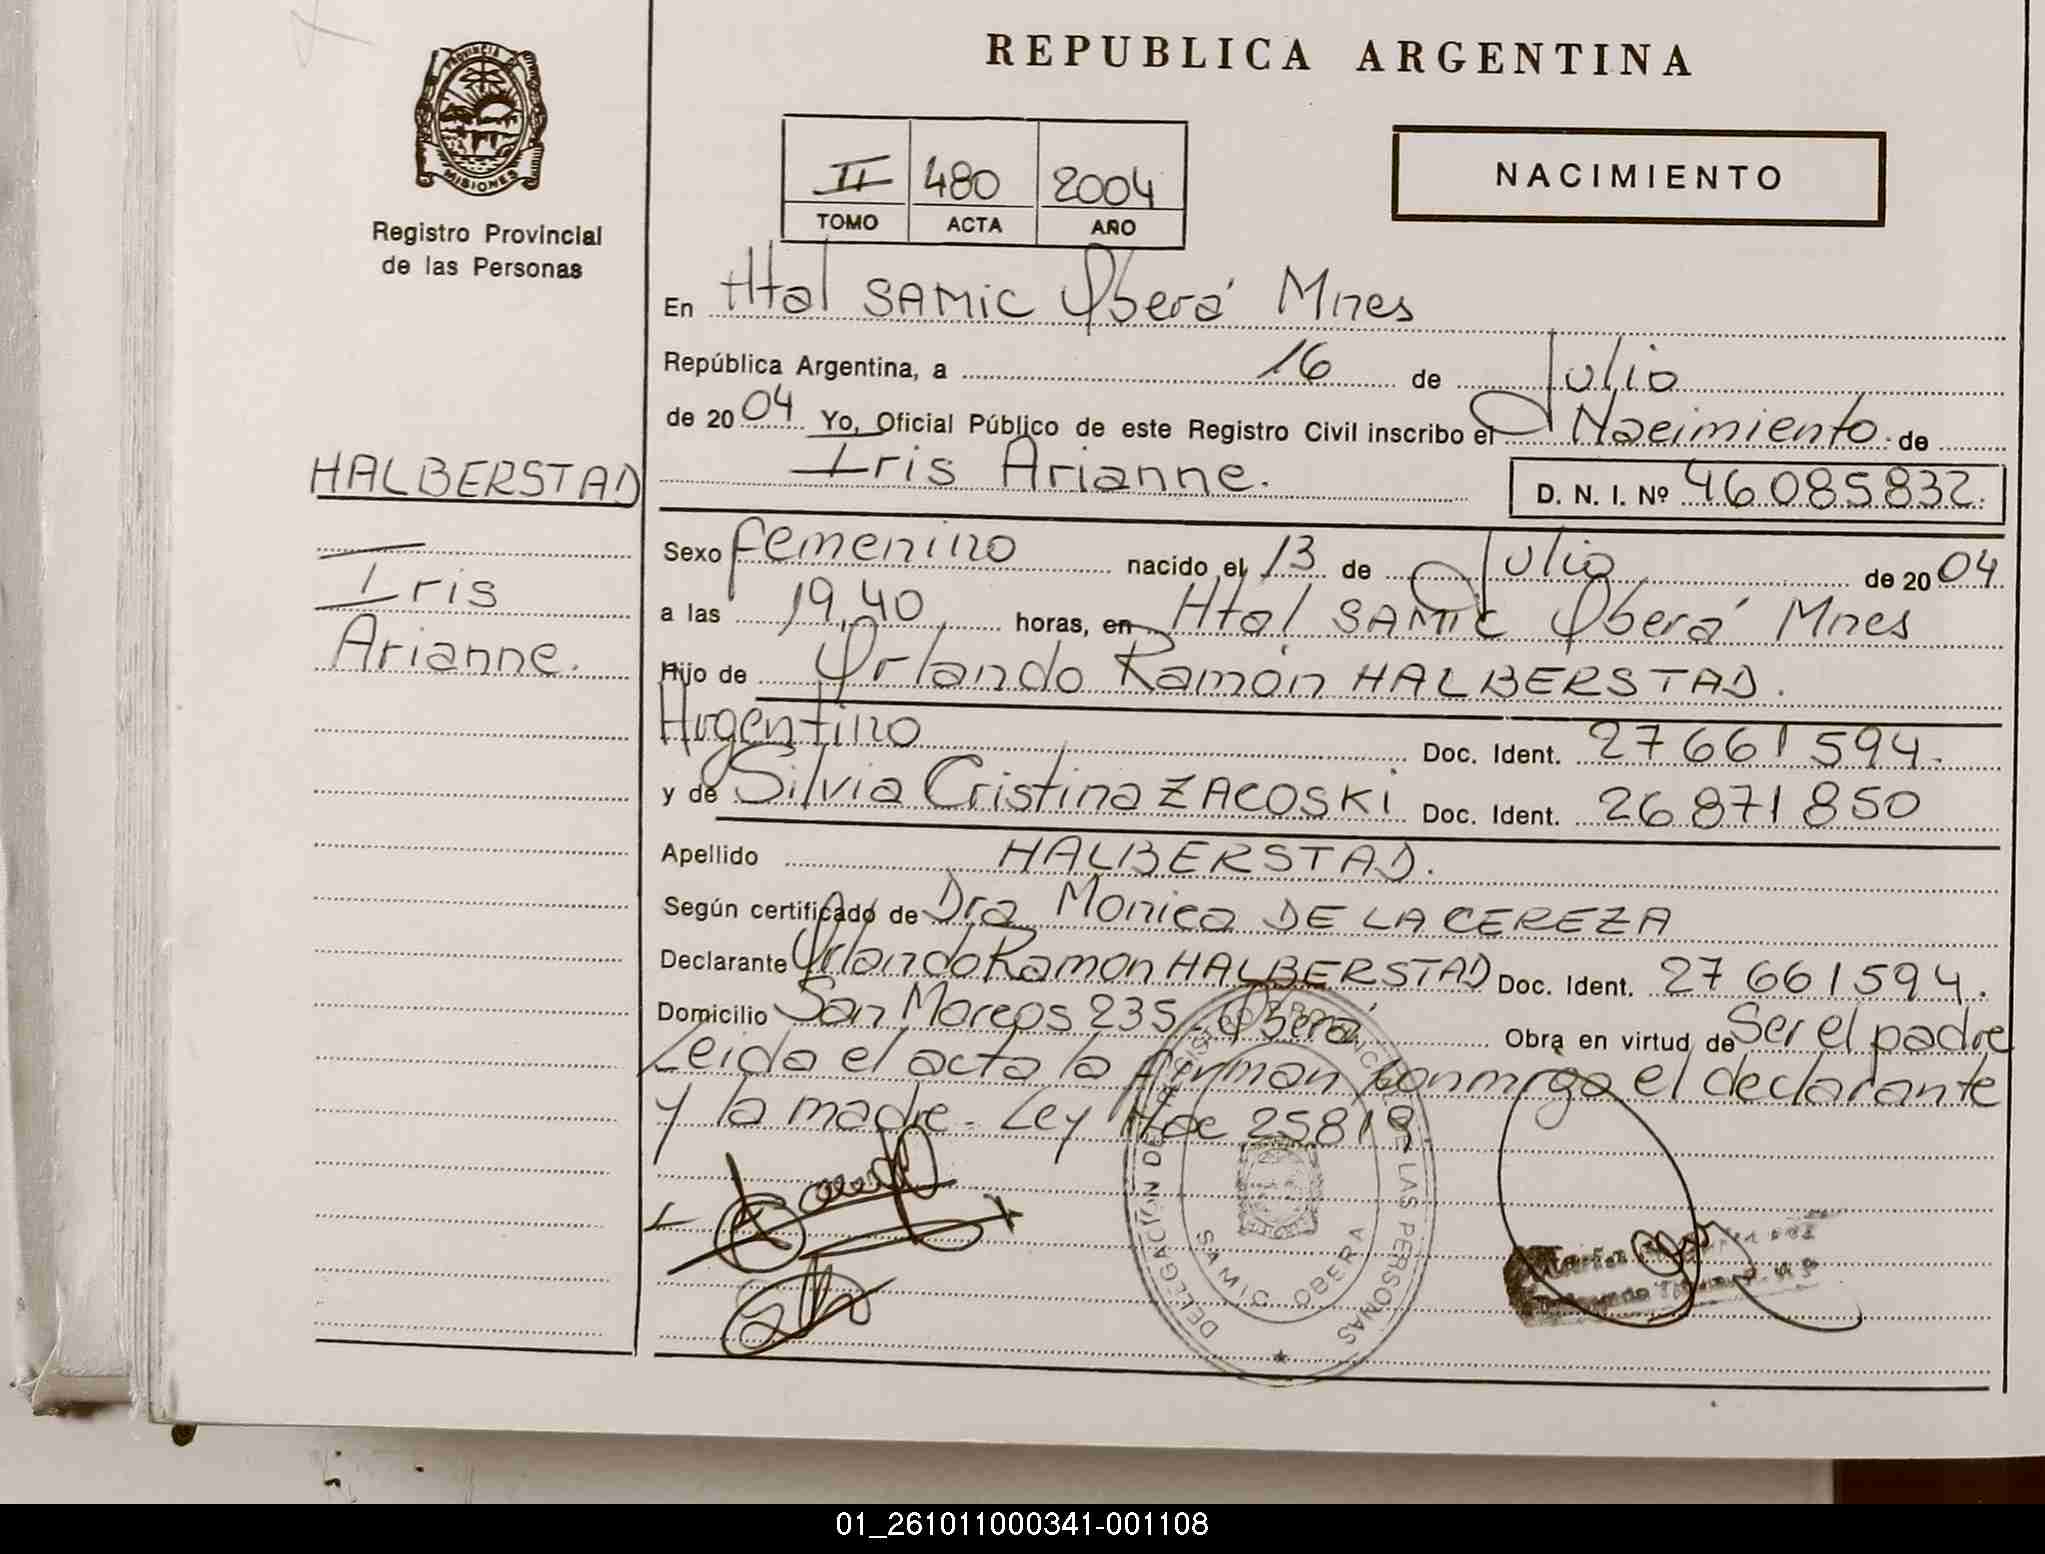 REPUBLICA ARGENTINA
PROVINCIA DE
MISIONES
Registro Provincial
de las Personas
II 480 2004
TOMO ACTA AÑO
NACIMIENTO
En Htal SAMIC Oberá Mnes
República Argentina, a 16 de Julio
de 2004 Yo, Oficial Público de este Registro Civil inscribo el Nacimiento de
Iris Arianne.
D. N. I. Nº 46085832.
HALBERSTAD
Iris
Arianne.
Sexo femenino nacido el 13 de Julio de 2004
a las 19,40 horas, en Htal SAMIC Oberá Mnes
Hijo de Orlando Ramón HALBERSTAD.
Argentino Doc. Ident. 27661594.
y de Silvia Cristina ZACOSKI Doc. Ident. 26871850
Apellido HALBERSTAD.
Según certificado de Dra Monica DE LA CEREZA
Declarante Orlando Ramon HALBERSTAD Doc. Ident. 27661594.
Domicilio San Marcos 235 - Oberá Obra en virtud de Ser el padre
Leida el acta la firman conmigo el declarante
y la madre. Ley Nac 25819
DELEGACION DEL REGISTRO PROVINCIAL DE LAS PERSONAS
SAMIC OBERA
01_261011000341-001108